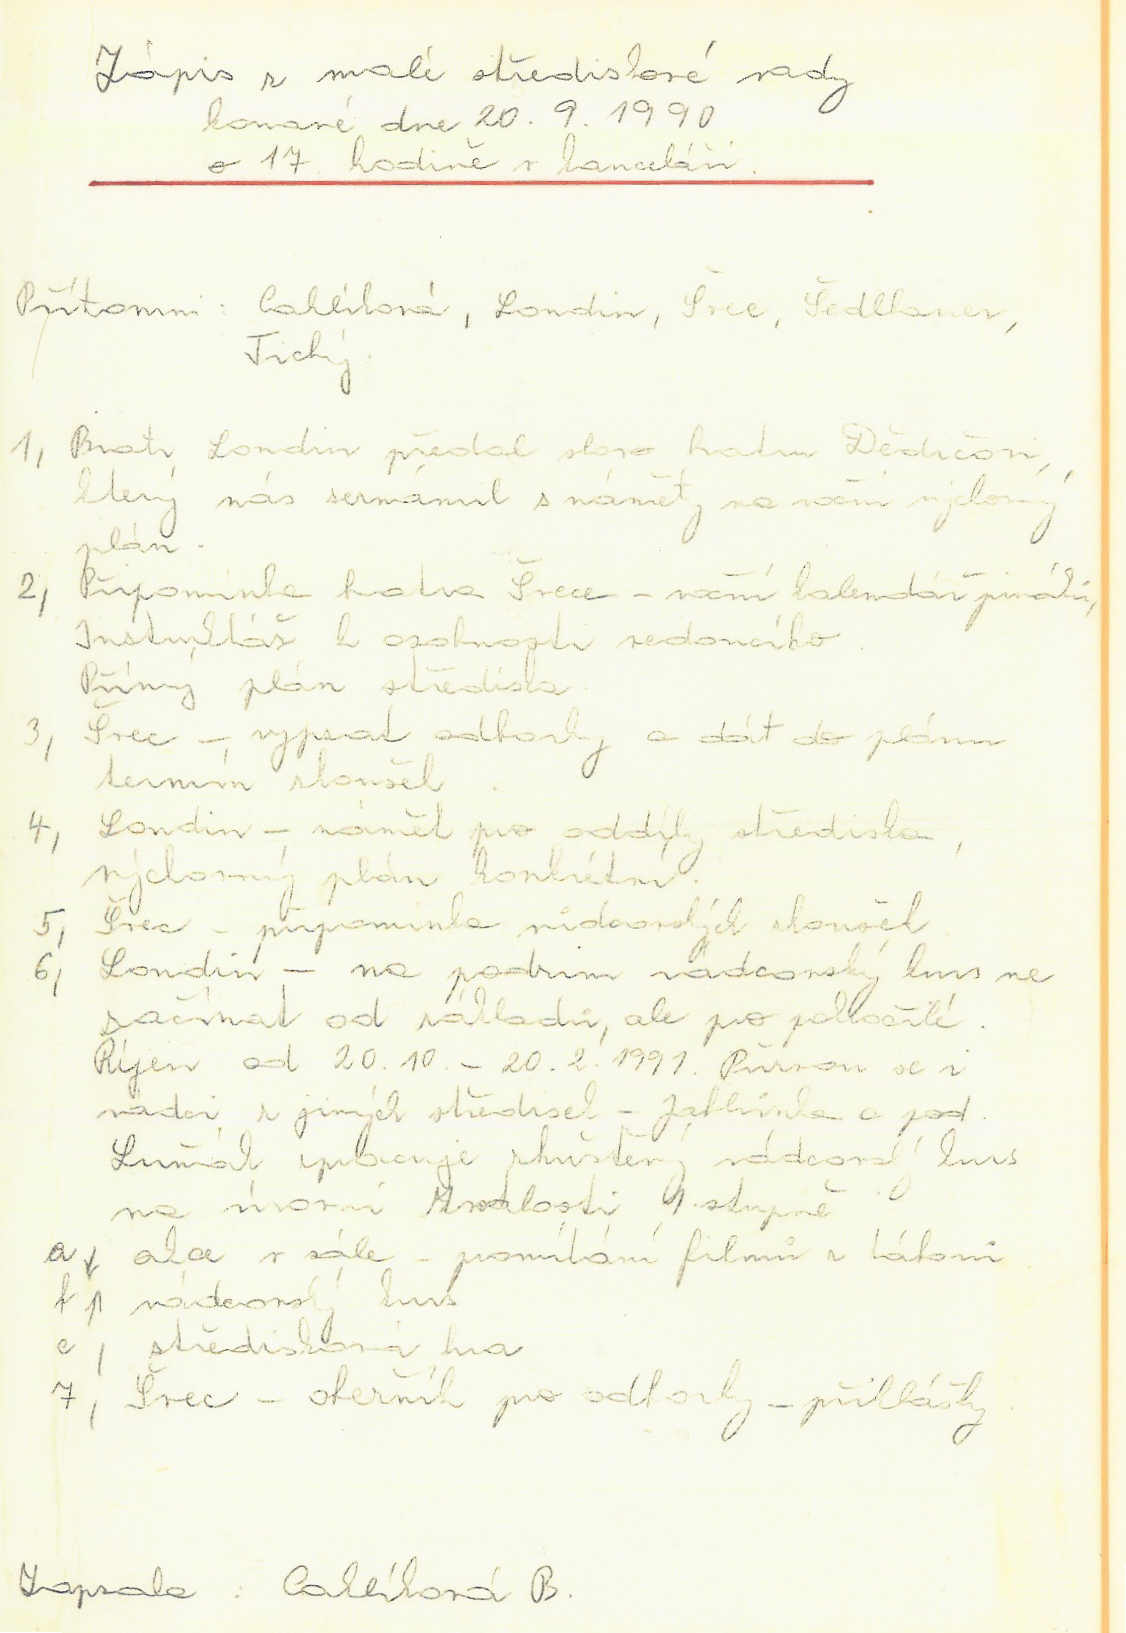 Zápis z malé střediskové rady
konané dne 20. 9. 1990
o 17. hodině v kanceláři.
Přítomni : Cahlíková, Londin, Švec, Šedlbauer,
Tichý.
1, Bratr Londin předal slovo bratru Dědičovi,
který nás seznámil s náměty na roční výchovný
plán.
2, Připomínka bratra Švece – roční kalendář pirátů,
Instruktáž k osobnosti vedoucího.
Přímý plán střediska.
3, Švec – vypsat odborky a dát do plánu
termín zkoušek.
4, Londin – námět pro oddíly střediska,
výchovný plán konkrétní.
5, Švec – připomínka vůdcovských zkoušek.
6, Londin – na podzim rádcovský kurs ne
začínat od základů, ale pro pokročilé.
Říjen od 20. 10. – 20. 2. 1991. Přizvou se i
rádci z jiných středisek – Jablůnka a pod.
zpracuje zhuštěný rádcovský kurs
na úrovni 1. stupně
a, akce v sále – promítání filmů z táborů
b, rádcovský kurs
c, středisková hra
7, Švec – oběžník pro odborky – přihlášky.
Zapsala : Cahlíková B.